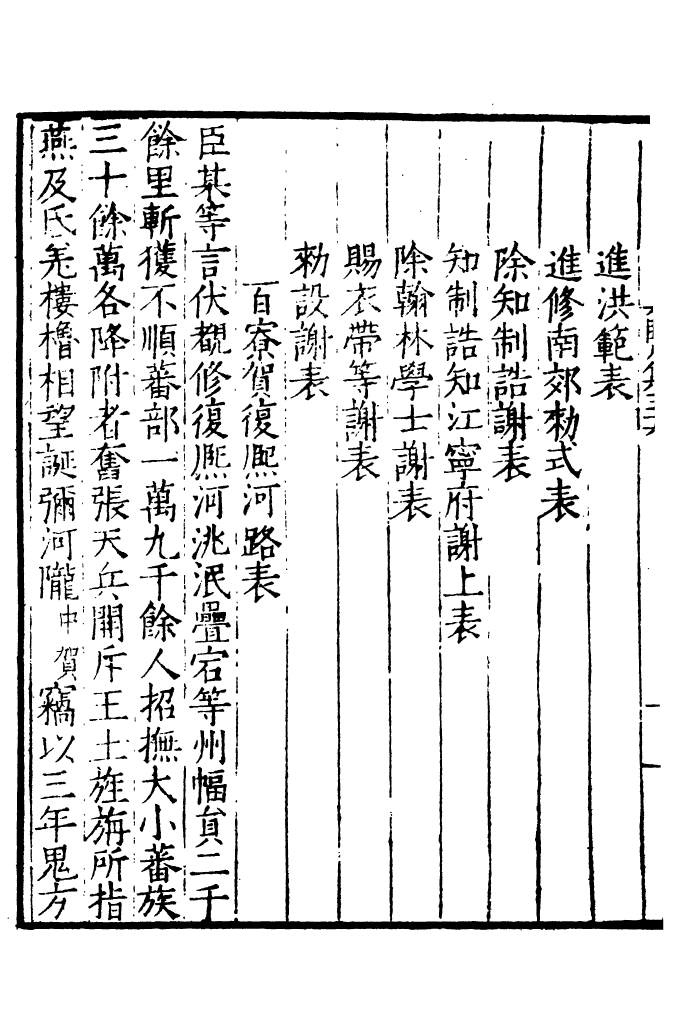 進洪範表
進修南郊勑式表
除知制誥謝表
知制誥知江寧府謝上表
除翰林學士謝表
賜衣帶等謝表
勑設謝表
百寮賀復熙河路表
臣某等言伏覩修復熙河洮泯疊宕等州幅員二千
餘里斬獲不順蕃部一萬九千餘人招撫大小蕃族
三十餘萬各降附者奮張天兵開斥王土旌旃所指
燕及氐羌樓櫓相望誕彌河隴中賀竊以三年鬼方